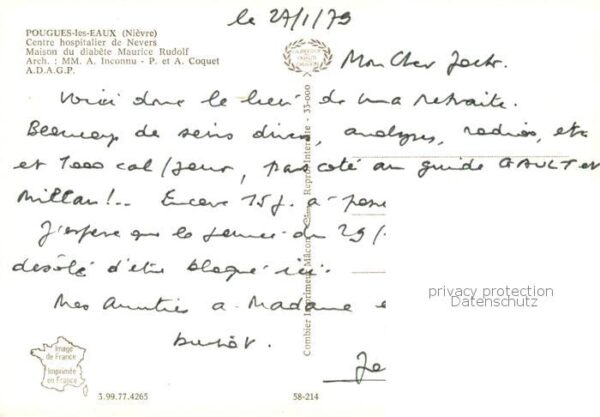 POUGUES-les-EAUX (Nièvre)
Centre hospitalier de Nevers
Maison du diabète Maurice Rudolf
Arch. : MM. A. Inconnu - P. et A. Coquet
A.D.A.G.P.
le 27/1/79
Mon Cher
Voici donc le lieu de ma retraite.
Beaucoup de soins divers, analyses, radios, etc
et 1000 cal/jour, pas coté au guide GAULT et
Millau!.. Encore 15 j. à
J'espère que la du 29/
désolé d'être bloqué ici.
Mes Amitiés à Madame
bientôt.
Combier Imprimeur Mâcon
33-000
privacy protection
Datenschutz
Image
de France
Imprimée
en France
3.99.77.4265
58-214